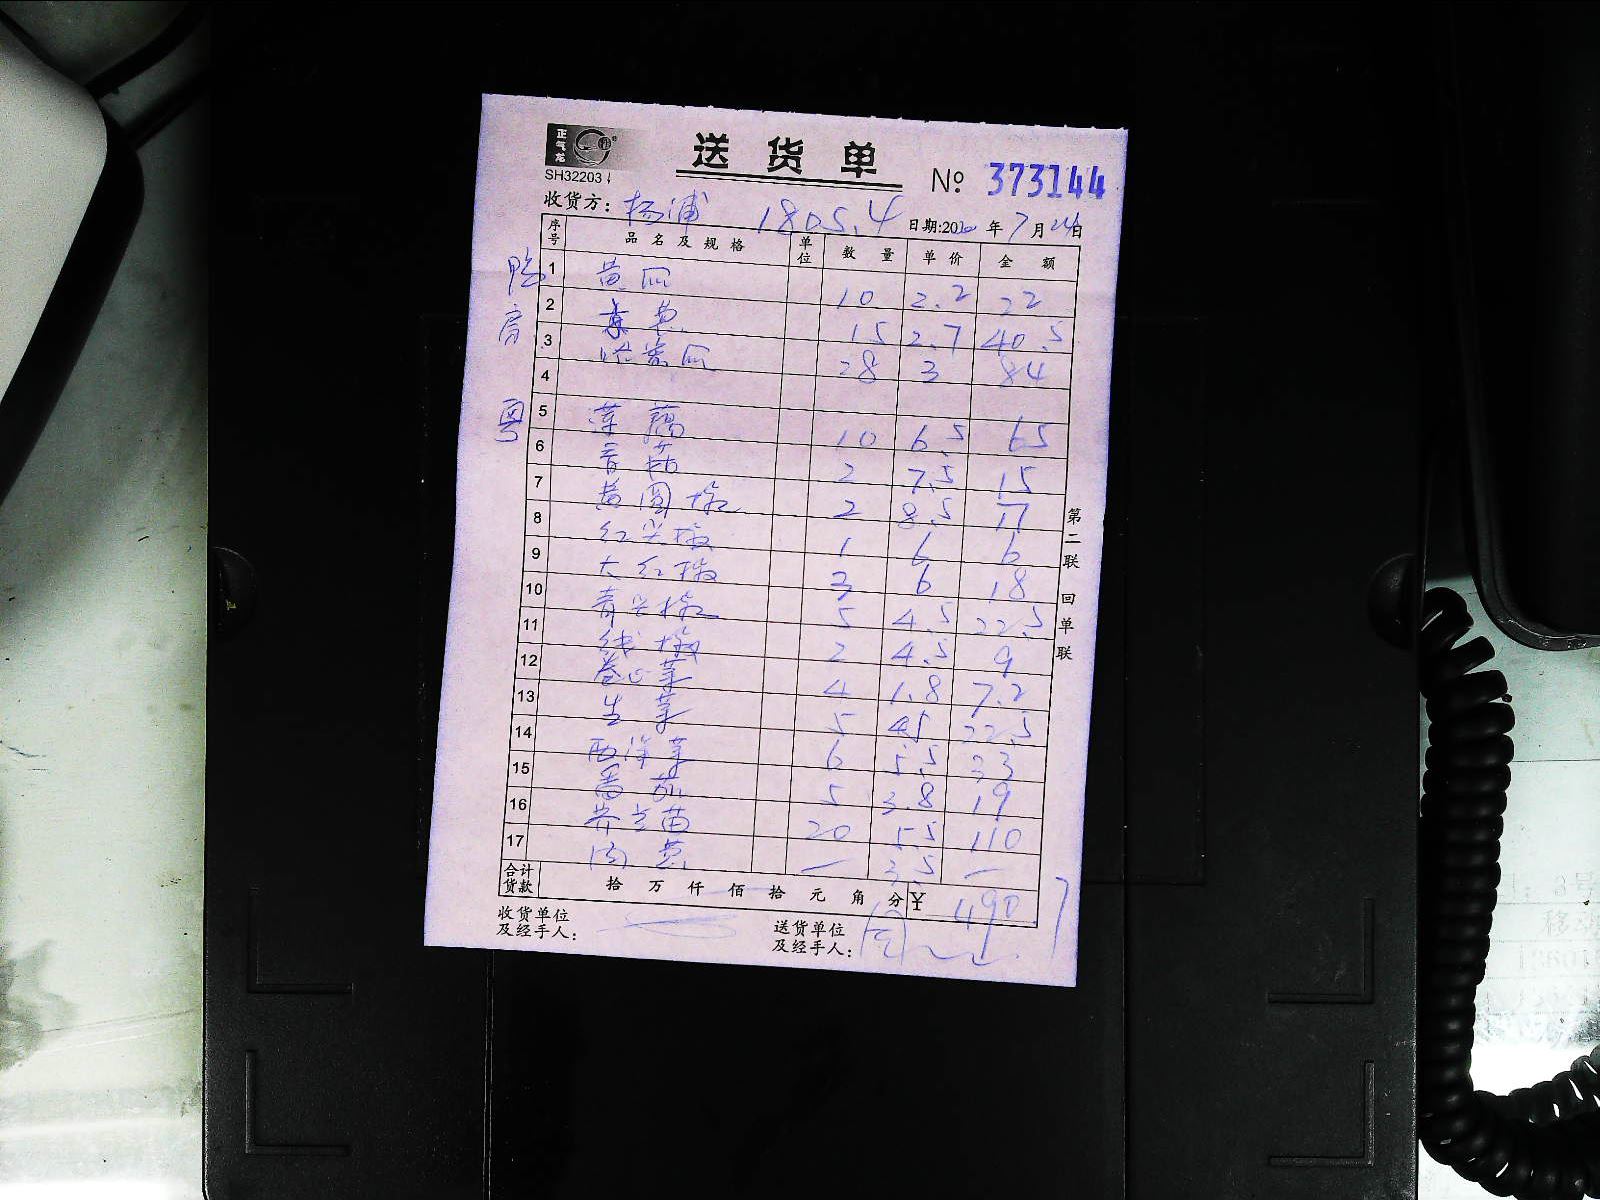 正气龙
SH32203
送货单
№ 373144
收货方: 杨浦 1805.4 日期:20 年7月24日
序号 品名及规格 单位 数量 单价 金额
鸭房
1 黄瓜 10 2.2 22
2 京葱 15 2.7 40.5
3 哈密瓜 28 3 84
4
粤
5 莲藕 10 6.5 65
6 香菇 2 7.5 15
7 黄圆椒 2 8.5 17
8 红尖椒 1 6 6
9 大红椒 3 6 18
10 青尖椒 5 4.5 22.5
11 线椒 2 4.5 9
12 卷心菜 4 1.8 7.2
13 生菜 5 4.5 22.5
14 西洋菜 6 5.5 33
15 番茄 5 3.8 19
16 芥兰苗 20 5.5 110
17 肉葱 — 3.5 —
合计货款 拾 万 仟 佰 拾 元 角 分 ¥ 490.7
收货单位及经手人:
送货单位及经手人:
第二联 回单联